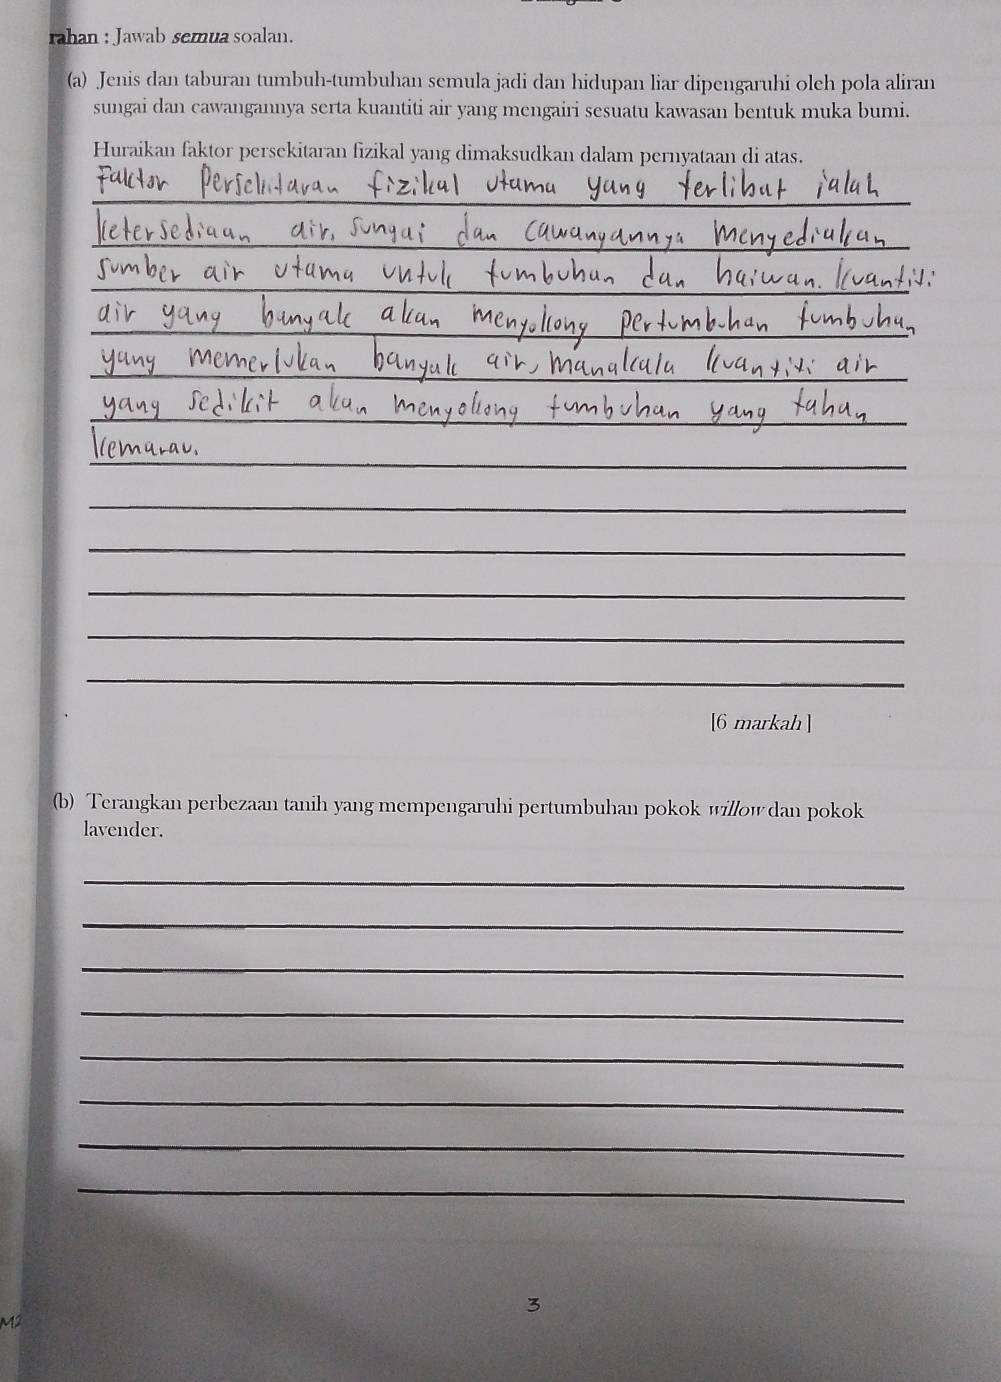 rahan : Jawab semua soalan.
(a) Jenis dan taburan tumbuh-tumbuhan semula jadi dan hidupan liar dipengaruhi oleh pola aliran
sungai dan cawangannya serta kuantiti air yang mengairi sesuatu kawasan bentuk muka bumi.
Huraikan faktor persekitaran fizikal yang dimaksudkan dalam pernyataan di atas.
Faktor Persekitaran fizikal utama yang terlibat ialah
ketersediaan air, sungai dan cawangannya menyediakan
sumber air utama untuk tumbuhan dan haiwan. kuantiti
air yang banyak akan menyokong pertumbuhan tumbuhan
yang memerlukan banyak air, manakala kuantiti air
yang sedikit akan menyokong tumbuhan yang tahan
kemarau.
[6 markah]
(b) Terangkan perbezaan tanih yang mempengaruhi pertumbuhan pokok willow dan pokok
lavender.
3
M2